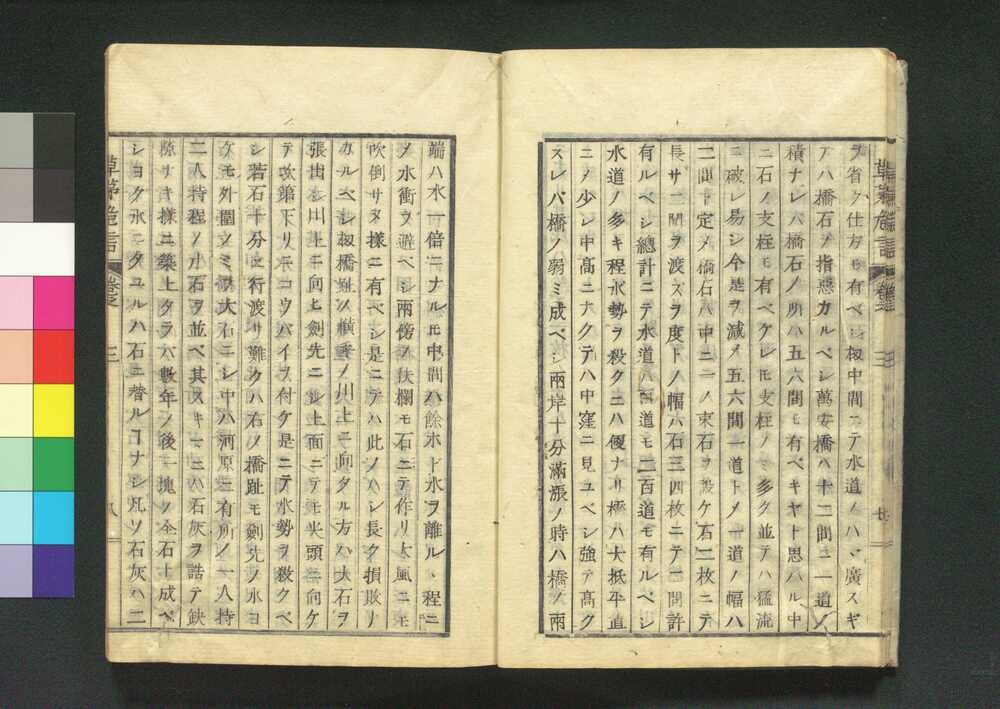 ヲ省ク仕方モ有ベシ扨中間ニテ水道ノハヾ廣スギ
テハ橋石ノ指惑カルベシ萬安橋ハ十二間ニ一道ノ
積ナレバ橋石ノ所ハ五六間モ有ベキヤト思ハル中
ニ石ノ支柱モ有ベケレ𪜈支柱ノミ多ク並テハ猛流
ニ破レ易シ今是ヲ減メ五六間一道トメ一道ノ幅ハ
二間ト定メ橋石ハ中ニ一ノ束石ヲ設ケ石二枚ニテ
長サ二間ヲ渡スヲ度トノ幅ハ石三四枚ニテ一間許
有ルベシ總計ニテ水道ハ百道モ二百道モ有ルベシ
水道ノ多キ程水勢ヲ殺クニハ便ナリ極ハ大抵平直
ニノ少シ中高ニナクテハ中窪ニ見ユベシ強テ高ク
スレバ橋ノ弱ミ成ベシ兩岸十分滿漲ノ時ハ橋ノ兩
端ハ水一倍ニナル𪜈中間ハ餘ホド水ヲ離ルヽ程ニ
ノ水衝ヲ避ベシ兩傍ノ扶欄モ石ニテ作リ大風ニモ
吹倒サヌ樣ニ有ベシ是ニテハ此ノハシ長ク損敗ナ
カルベシ扨橋趾ノ横ノ川上ニ向タル方ハ大石ヲ
張出シ川上ニ向ヒ劍先ニシ上面ニテモ尖頭ニ向ケ
テ次第下リニコウバイヲ付ケ是ニテ水勢ヲ殺クベ
シ若石十分ニ行渡リ難クハ右ノ橋趾モ劍先ノ水ヨ
ケモ外圍ノミ大石ニシ中ハ河原ニ有所ノ一人持
二人持程ノ小石ヲ並ベ其スキニハ石灰ヲ詰テ鈌
隙ナキ樣ニ築上タラバ數年ノ後一塊ノ全石ト成ベ
シヨク水ニタユルハ石ニ替ルコナシ凡ソ石灰ハ二
草茅危言
卷之
三
八